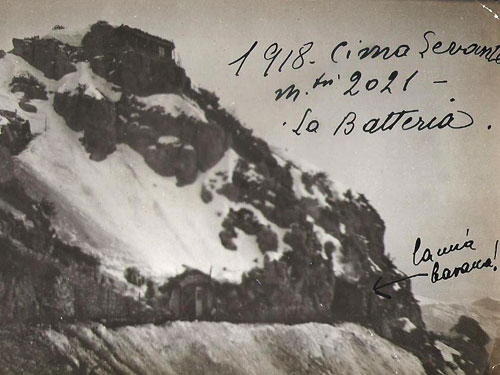 1918. Cima Levante
m.tri 2021 -
La Batteria.
la mia
baracca!